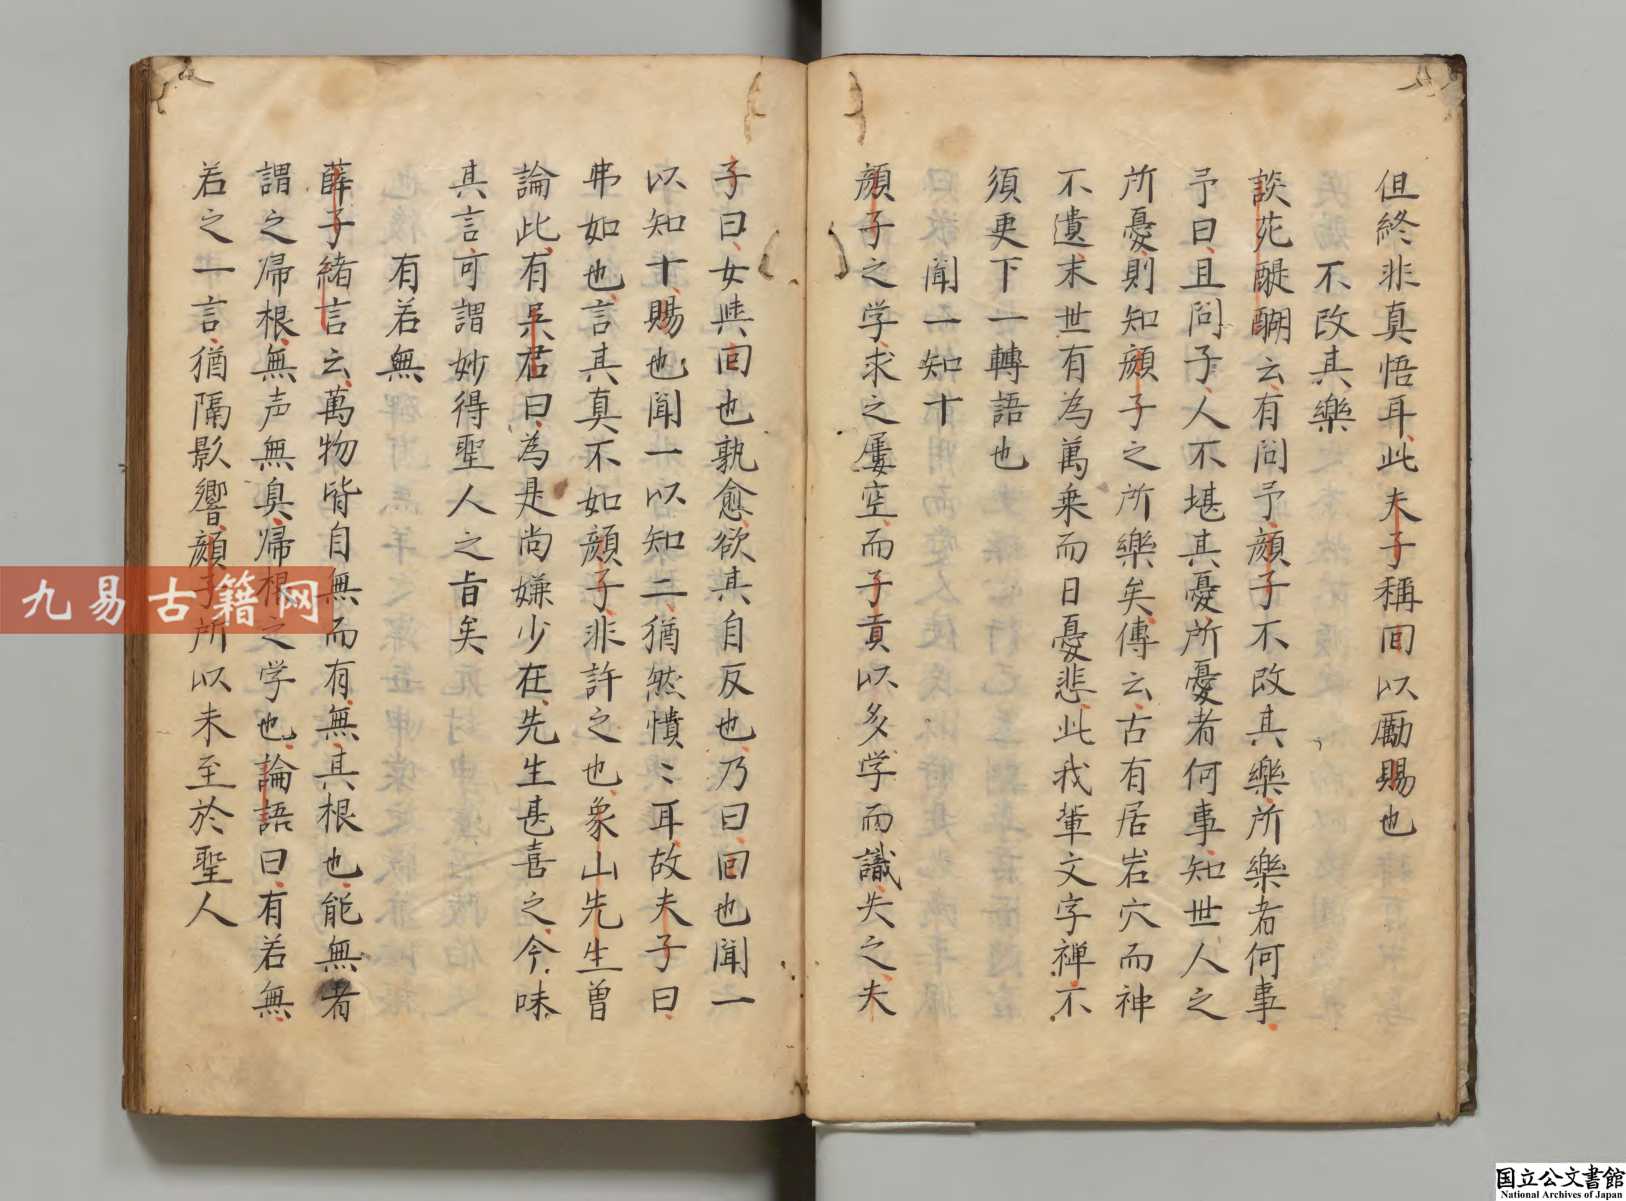 但終非真悟耳此夫子稱回以勵賜也
不改其樂
談苑醍醐云有问予顔子不改其樂所樂者何事
予曰且问子人不堪其憂所憂者何事知世人之
所憂則知顔子之所樂矣傳云古有居岩穴而神
不遺末世有為萬乗而日憂悲此我輩文字禅不
須更下一轉語也
聞一知十
顔子之学求之屢空而子貢以多学而識失之夫
子曰女與回也孰愈欲其自反也乃曰回也聞一
以知十賜也聞一以知二猶然憤〻耳故夫子曰
弗如也言其真不如顔子非許之也象山先生曽
論此有吴君曰為是尚嫌少在先生甚喜之今味
其言可謂妙得聖人之旨矣
有若無
薛子緒言云萬物皆自無而有無其根也能無者
謂之帰根無声無臭帰根之学也論語曰有若無
若之一言猶隔影響顔子所以未至於聖人
九易古籍网
国立公文書館
National Archives of Japan